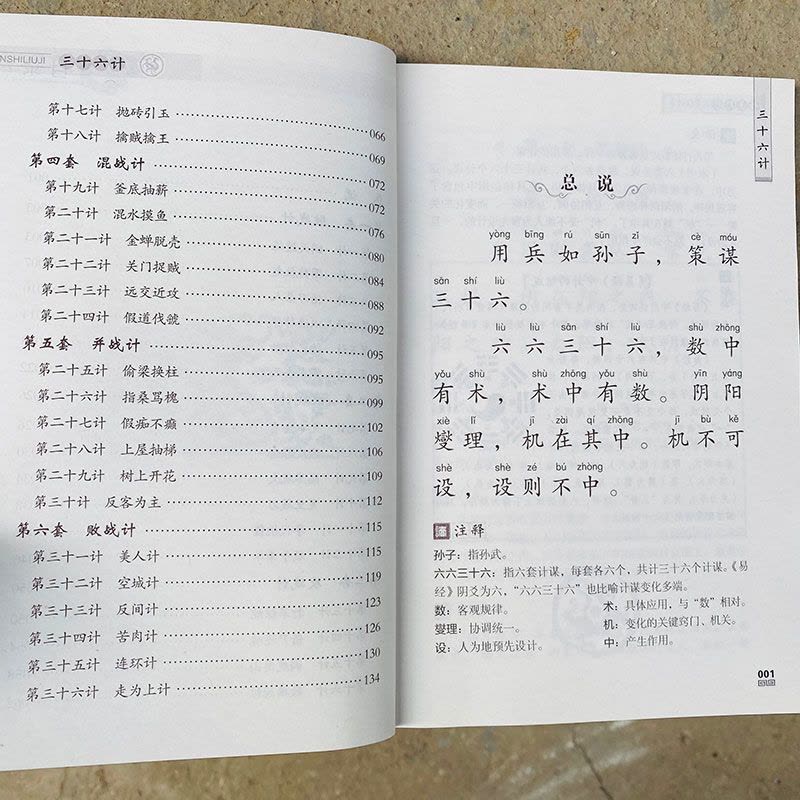 NSHILIUJI 三十六计
第十七计 抛砖引玉 066
第十八计 擒贼擒王 069
第四套 混战计 072
第十九计 釜底抽薪 072
第二十计 混水摸鱼 076
第二十一计 金蝉脱壳 080
第二十二计 关门捉贼 084
第二十三计 远交近攻 088
第二十四计 假道伐虢 092
第五套 并战计 095
第二十五计 偷梁换柱 095
第二十六计 指桑骂槐 099
第二十七计 假痴不癫 102
第二十八计 上屋抽梯 106
第二十九计 树上开花 109
第三十计 反客为主 112
第六套 败战计 115
第三十一计 美人计 115
第三十二计 空城计 119
第三十三计 反间计 123
第三十四计 苦肉计 126
第三十五计 连环计 130
第三十六计 走为上计 134
三十六计
总 说
yòng bīng rú sūn zǐ cè móu
用兵如孙子，策谋
sān shí liù
三十六。
liù liù sān shí liù shù zhōng
六六三十六，数中
yǒu shù shù zhōng yǒu shù yīn yáng
有术，术中有数。阴阳
xiè lǐ jī zài qí zhōng jī bù kě
燮理，机在其中。机不可
shè shè zé bú zhòng
设，设则不中。
注释
孙子：指孙武。
六六三十六：指六套计谋，每套各六个，共计三十六个计谋。《易
经》阴爻为六，“六六三十六”也比喻计谋变化多端。
数：客观规律。 术：具体应用，与“数”相对。
燮理：协调统一。 机：变化的关键窍门、机关。
设：人为地预先设计。 中：产生作用。
001